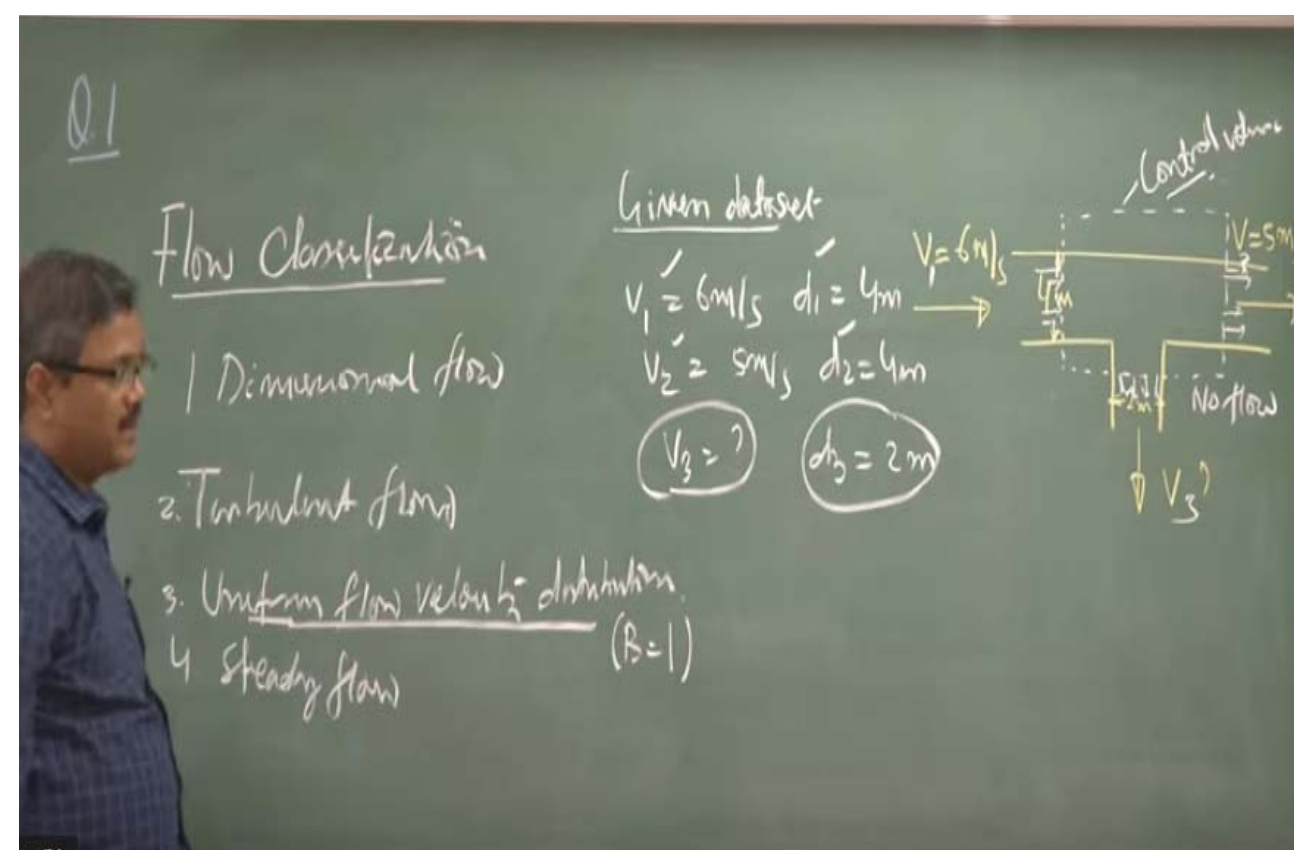 Q.1
Flow Classification
1 Dimensional flow
2. Turbulent flow
3. Uniform flow velocity distribution
(B=1)
4 Steady flow
Given dataset
V₁ = 6m/s d₁ = 4m
V₂ = 5m/s d₂ = 4m
V₃ = ? d₃ = 2m
Control volume
V₁ = 6m/s
V=5m
4m
2m
No flow
V₃ ?